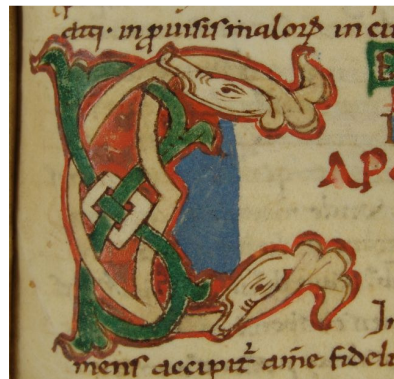 atq· in puisis malorꝝ in cu
E
AP
In
mens accipit᷑ ame fideli